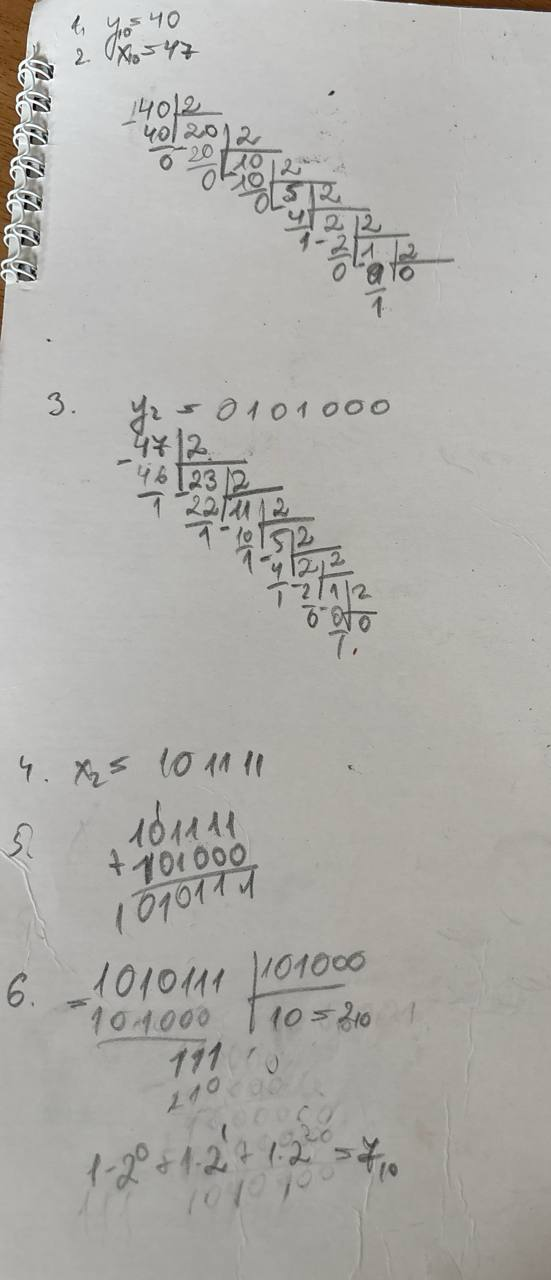 1. y10=40
2. x10=47
40 | 2
40 | 20 | 2
0 20 | 10 | 2
0 10 | 5 | 2
0 4 | 2 | 2
1 2 | 1 | 2
0 0 | 0
1
3. y2 = 0101000
47 | 2
46 | 23 | 2
1 22 | 11 | 2
1 10 | 5 | 2
1 4 | 2 | 2
1 2 | 1 | 2
0 0 | 0
1
4. x2 = 101111
5. 1
101111
+ 101000
1010111
6. 1010111 | 101000
101000 | 10 = 210
111
210
1·2^0 + 1·2^1 + 1·2^2 = 710